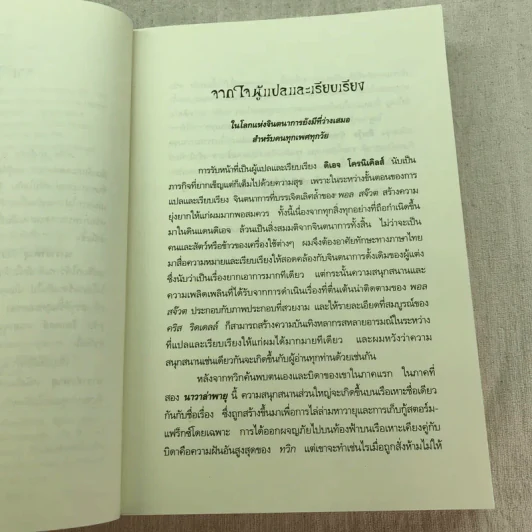 จากใจผู้แปลและเรียบเรียง
ในโลกแห่งจินตนาการยังมีที่ว่างเสมอ
สำหรับคนทุกเพศทุกวัย
การรับหน้าที่เป็นผู้แปลและเรียบเรียง ดิเอจ โครนิเคิลส์ นับเป็น
ภารกิจที่ยากเข็ญแต่ก็เต็มไปด้วยความสุข เพราะในระหว่างขั้นตอนของการ
แปลและเรียบเรียง จินตนาการที่บรรเจิดเลิศล้ำของ พอล สจ๊วต สร้างความ
ยุ่งยากให้แก่ผมมากพอสมควร ทั้งนี้เนื่องจากทุกสิ่งทุกอย่างที่ถือกำเนิดขึ้น
มาในดินแดนดิเอจ ล้วนเป็นสิ่งสมมติจากจินตนาการทั้งสิ้น ไม่ว่าจะเป็น
คนและสัตว์หรือข้าวของเครื่องใช้ต่างๆ ผมจึงต้องอาศัยทักษะทางภาษาไทย
มาสื่อความหมายและเรียบเรียงให้สอดคล้องกับจินตนาการดั้งเดิมของผู้แต่ง
ซึ่งนับว่าเป็นเรื่องยากเอาการมากทีเดียว แต่กระนั้นความสนุกสนานและ
ความเพลิดเพลินที่ได้รับจากการดำเนินเรื่องที่ตื่นเต้นน่าติดตามของ พอล
สจ๊วต ประกอบกับภาพประกอบที่สวยงาม และให้รายละเอียดที่สมบูรณ์ของ
คริส ริดเดลล์ ก็สามารถสร้างความบันเทิงหลากรสหลายอารมณ์ในระหว่าง
ที่แปลและเรียบเรียงให้แก่ผมได้มากมายทีเดียว และผมหวังว่าความ
สนุกสนานเช่นเดียวกันจะเกิดขึ้นกับผู้อ่านทุกท่านด้วยเช่นกัน
หลังจากทวิกค้นพบตนเองและบิดาของเขาในภาคแรก ในภาคที่
สอง นาวาล่าพายุ นี้ ความสนุกสนานส่วนใหญ่จะเกิดขึ้นบนเรือเหาะชื่อเดียว
กันกับชื่อเรื่อง ซึ่งถูกสร้างขึ้นมาเพื่อการไล่ล่ามหาวายุและการเก็บกู้สตอร์ม-
แฟร็กซ์โดยเฉพาะ การได้ออกผจญภัยไปบนท้องฟ้าบนเรือเหาะเคียงคู่กับ
บิดาคือความฝันอันสูงสุดของ ทวิก แต่เขาจะทำเช่นไรเมื่อถูกสั่งห้ามไม่ให้